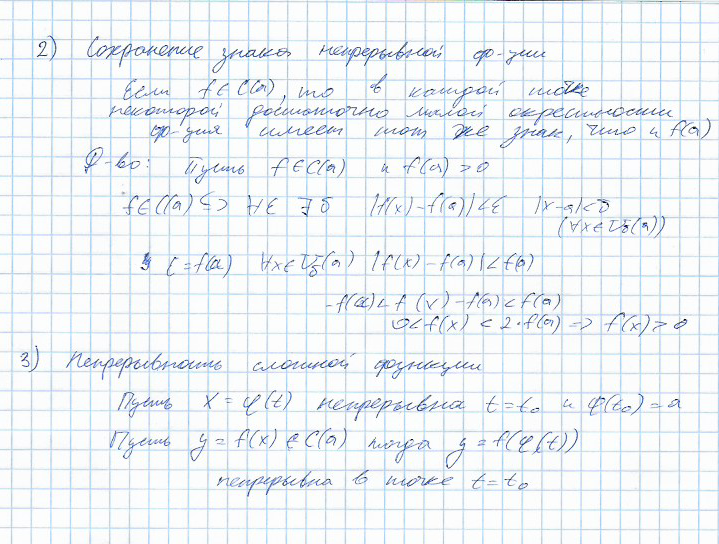 2) Сохранение знака непрерывной ф-ции
Если f∈C(a), то в каждой точке
некоторой достаточно малой окрестности
ф-ция имеет тот же знак, что и f(a)
Д-во: Пусть f∈C(a) и f(a)>0
f∈C(a) <=> ∀ε ∃δ |f(x)-f(a)|<ε |x-a|<δ
(∀x∈U_δ(a))
ε=f(a) ∀x∈U_δ(a) |f(x)-f(a)|<f(a)
-f(a)<f(x)-f(a)<f(a)
0<f(x)<2·f(a) => f(x)>0
3) Непрерывность сложной функции
Пусть x=φ(t) непрерывна t=t₀ и φ(t₀)=a
Пусть y=f(x)∈C(a) тогда y=f(φ(t))
непрерывна в точке t=t₀